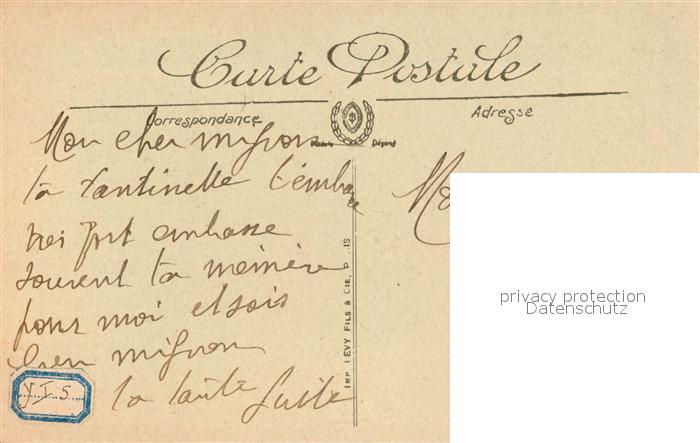 Carte Postale
Correspondance
Adresse
Modèle Déposé
Mon cher mignon
ta tantinette t'embrasse
très fort embrasse
souvent ta mémère
pour moi et sois
bien mignon
ta tante
IMP. LEVY FILS & CIE, P IS
privacy protection
Datenschutz